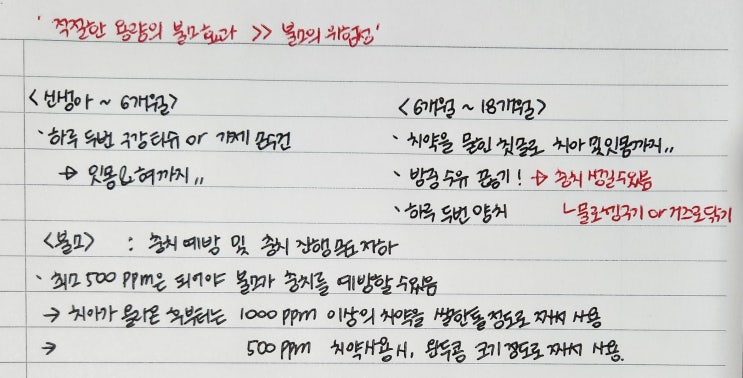 '적절한 용량의 불소효과 >> 불소의 위험성'
<신생아 ~ 6개월>
· 하루 두번 구강티슈 or 가제 손수건
→ 잇몸&혀까지,,
<6개월 ~ 18개월>
· 치약을 묻힌 칫솔로 치아 및 잇몸까지,,
· 밤중 수유 끊기! → 충치 생길 수 있음
· 하루 두번 양치 ㄴ물로 헹구기 or 거즈로 닦기
<불소> : 충치 예방 및 충치 진행 속도 저하
· 최소 500 ppm은 되어야 불소가 충치를 예방할 수 있음
→ 치아가 올라온 후부터는 1000 ppm 이상의 치약을 쌀 한톨 정도로 짜서 사용
→ 500 ppm 치약사용시, 완두콩 크기 정도로 짜서 사용.